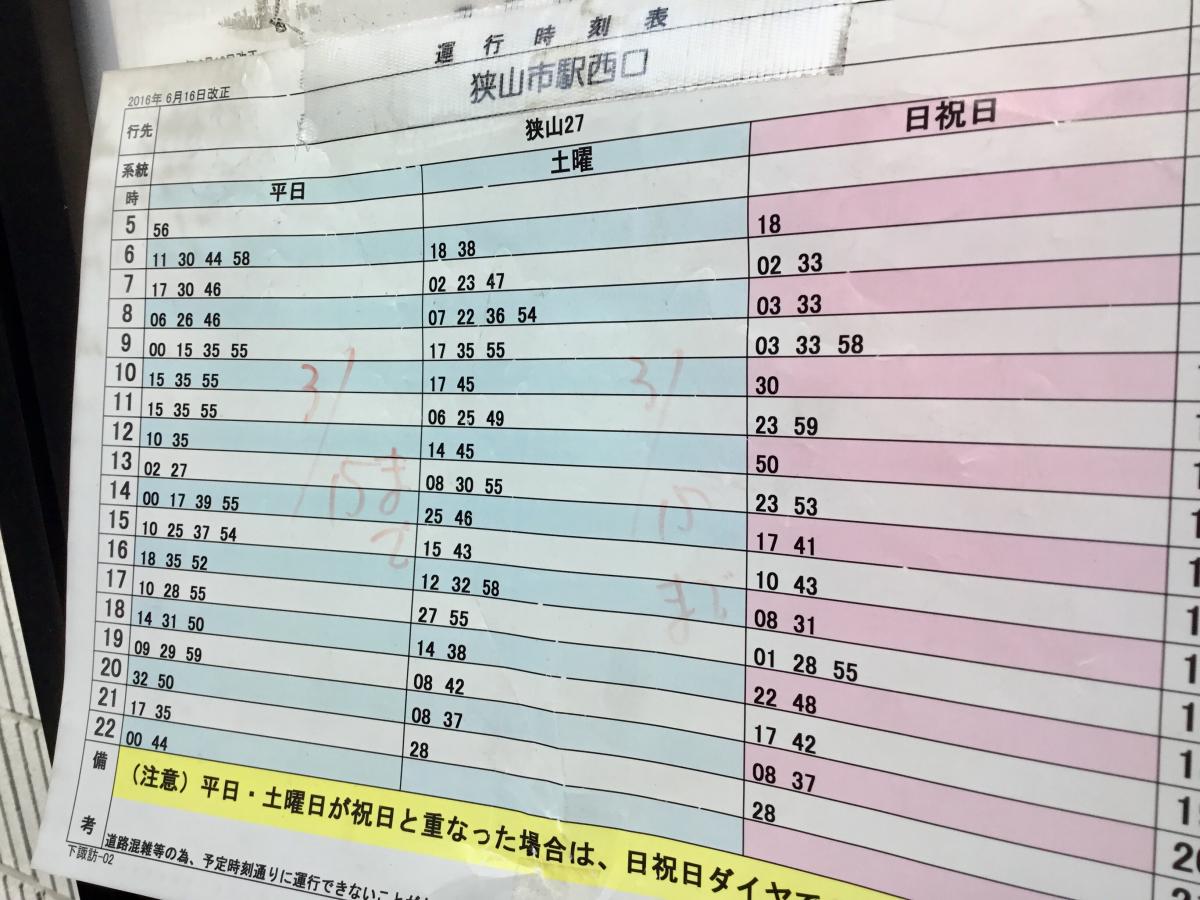 運行時刻表
狭山市駅西口
2016年 6月16日改正
行先
系統 狭山27
時 平日 土曜 日祝日
5 56
6 11 30 44 58 18 38 18
7 17 30 46 02 23 47 02 33
8 06 26 46 07 22 36 54 03 33
9 00 15 35 55 17 35 55 03 33 58
10 15 35 55 17 45 30
11 15 35 55 06 25 49 23 59
12 10 35 14 45 50
13 02 27 08 30 55 23 53
14 00 17 39 55 25 46 17 41
15 10 25 37 54 15 43 10 43
16 18 35 52 12 32 58 08 31
17 10 28 55 27 55 01 28 55
18 14 31 50 14 38 22 48
19 09 29 59 08 42 17 42
20 32 50 08 37 08 37
21 17 35 28 28
22 00 44
3/15まで
3/15まで
備考
(注意)平日・土曜日が祝日と重なった場合は、日祝日ダイヤで
道路混雑等の為、予定時刻通りに運行できないことが
下諏訪-02